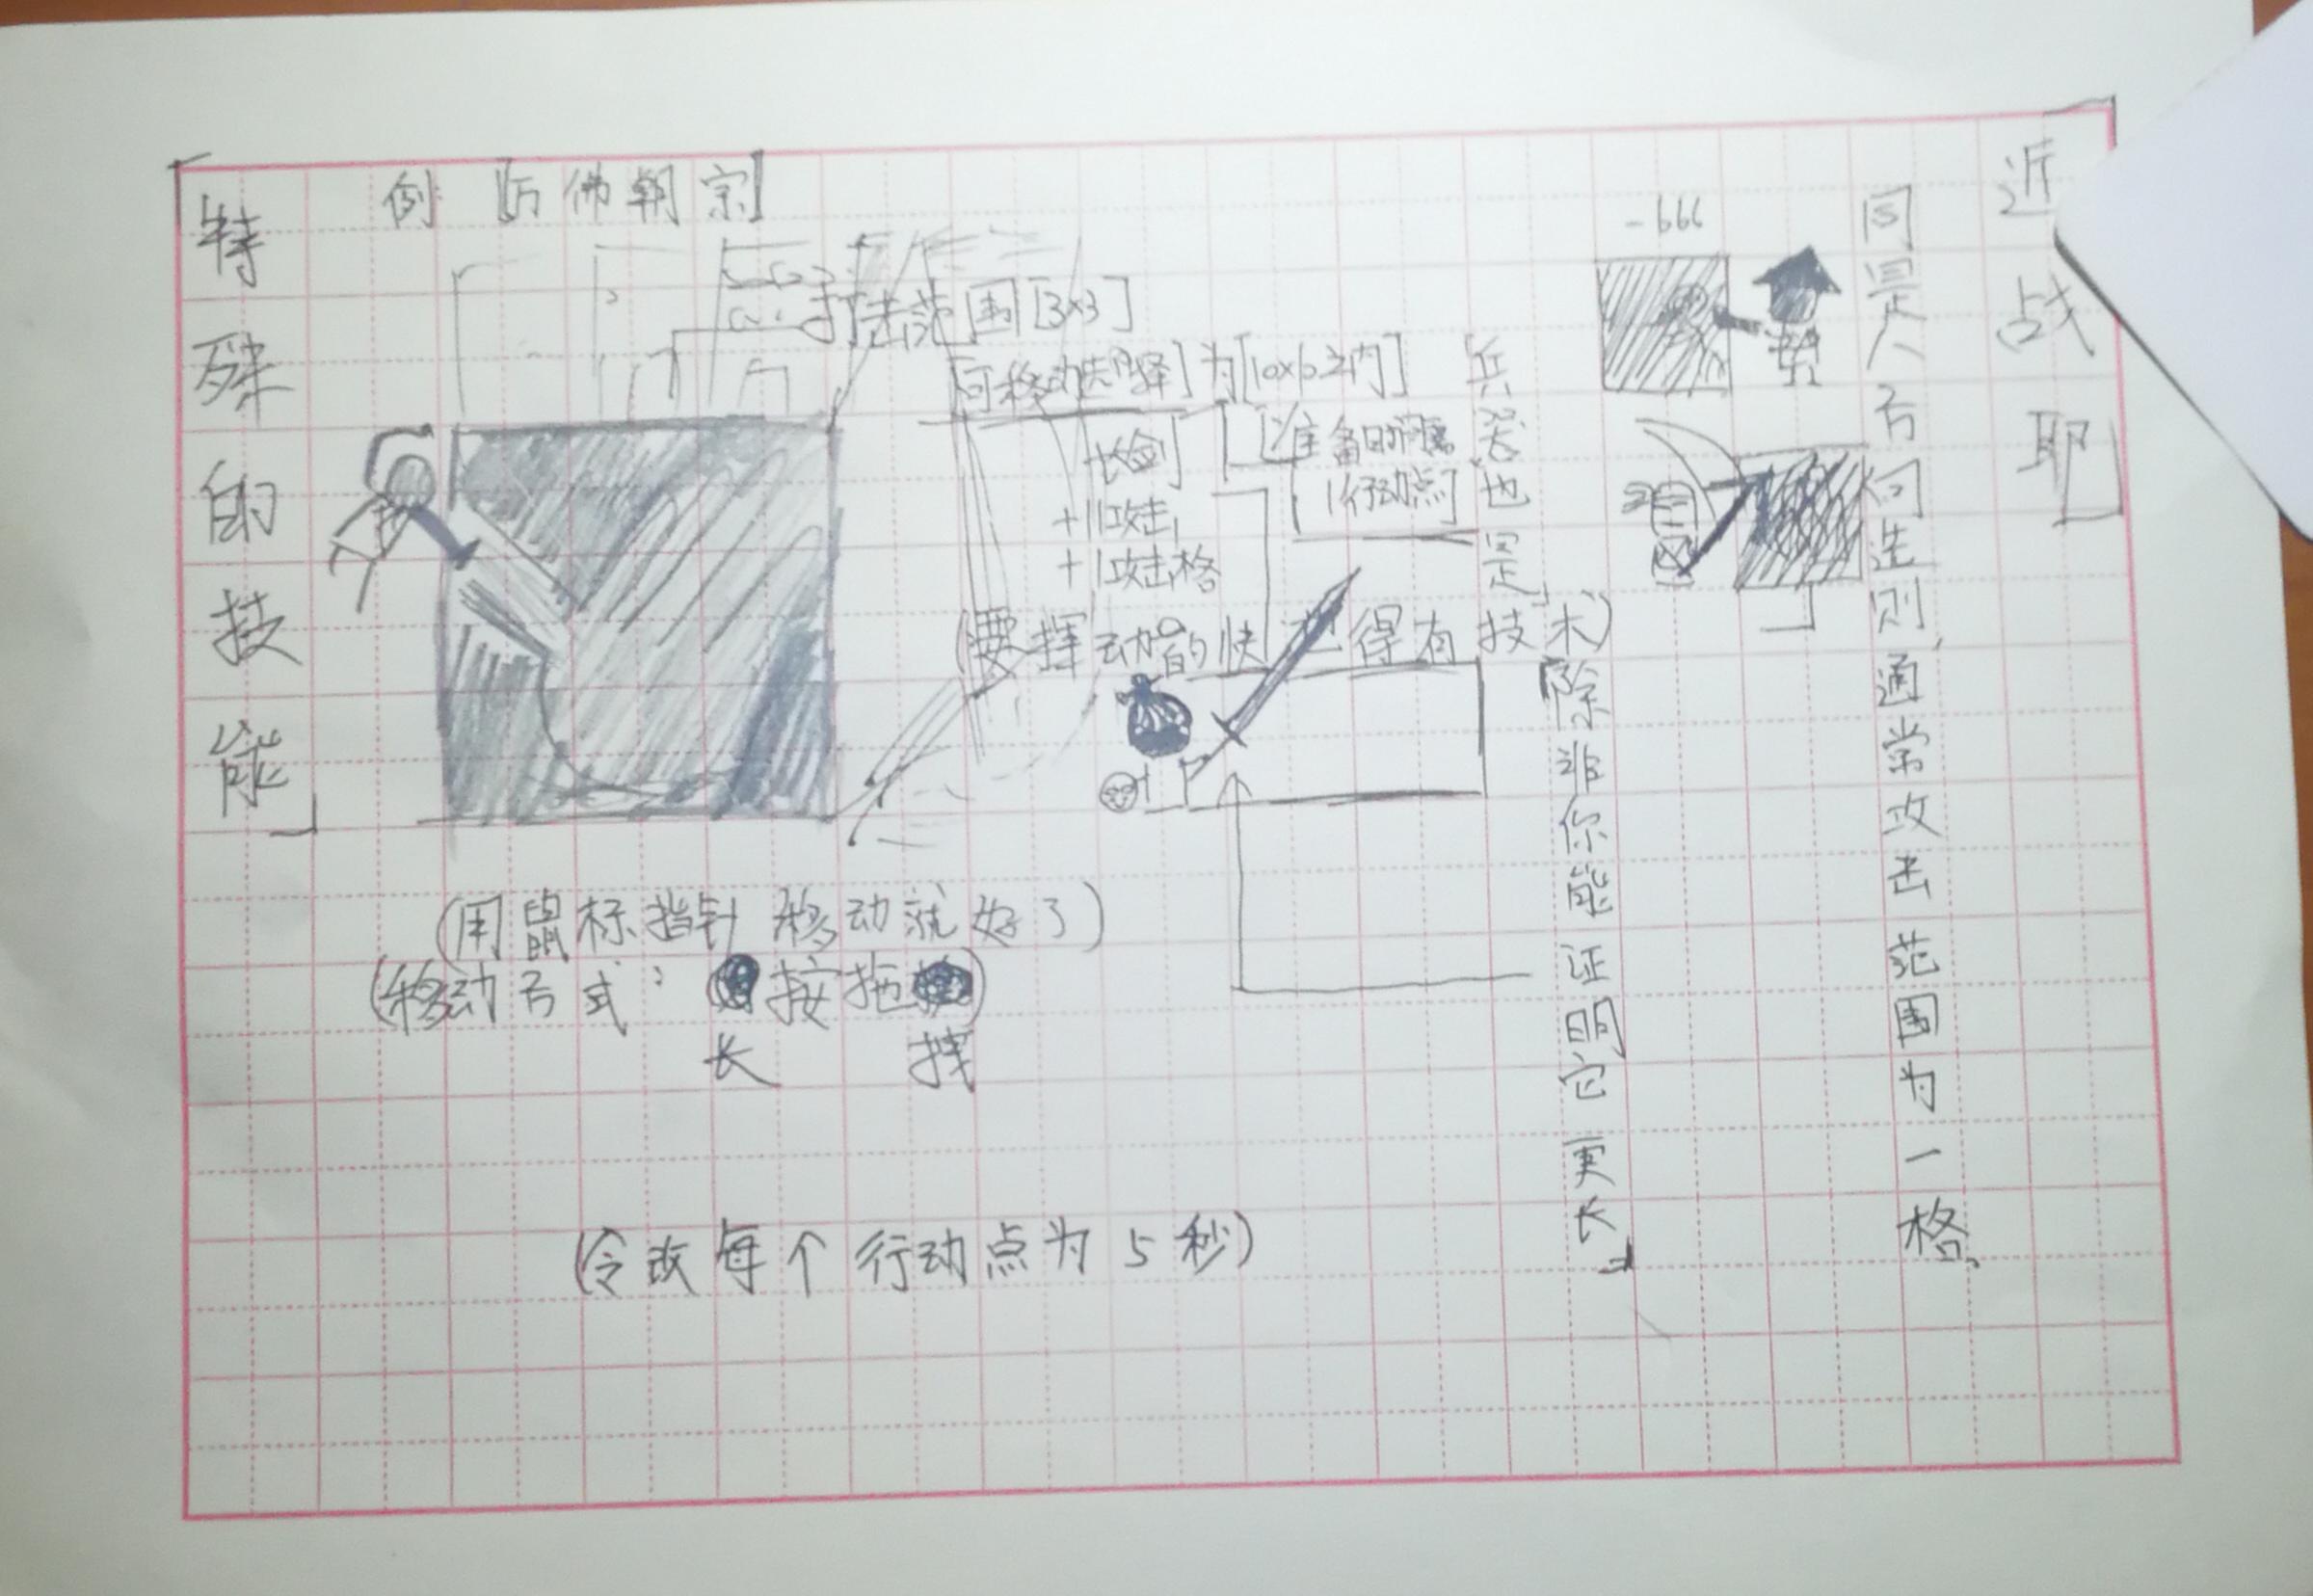 近战耶」
同是八方向选则,通常攻击范围为一格。
-666
「除非你能证明它更长」
兵器也是」
[准备时需
1行动点]
长剑
+1攻击
+1攻击格
(要挥动的快也得有技术)
「特殊的技能」
例「万佛朝宗」
打击范围[3×3]
[可移动选择]为[10×10之内]
(用鼠标指针移动就好了)
(移动方式:长按拖拽)
(令改每个行动点为5秒)